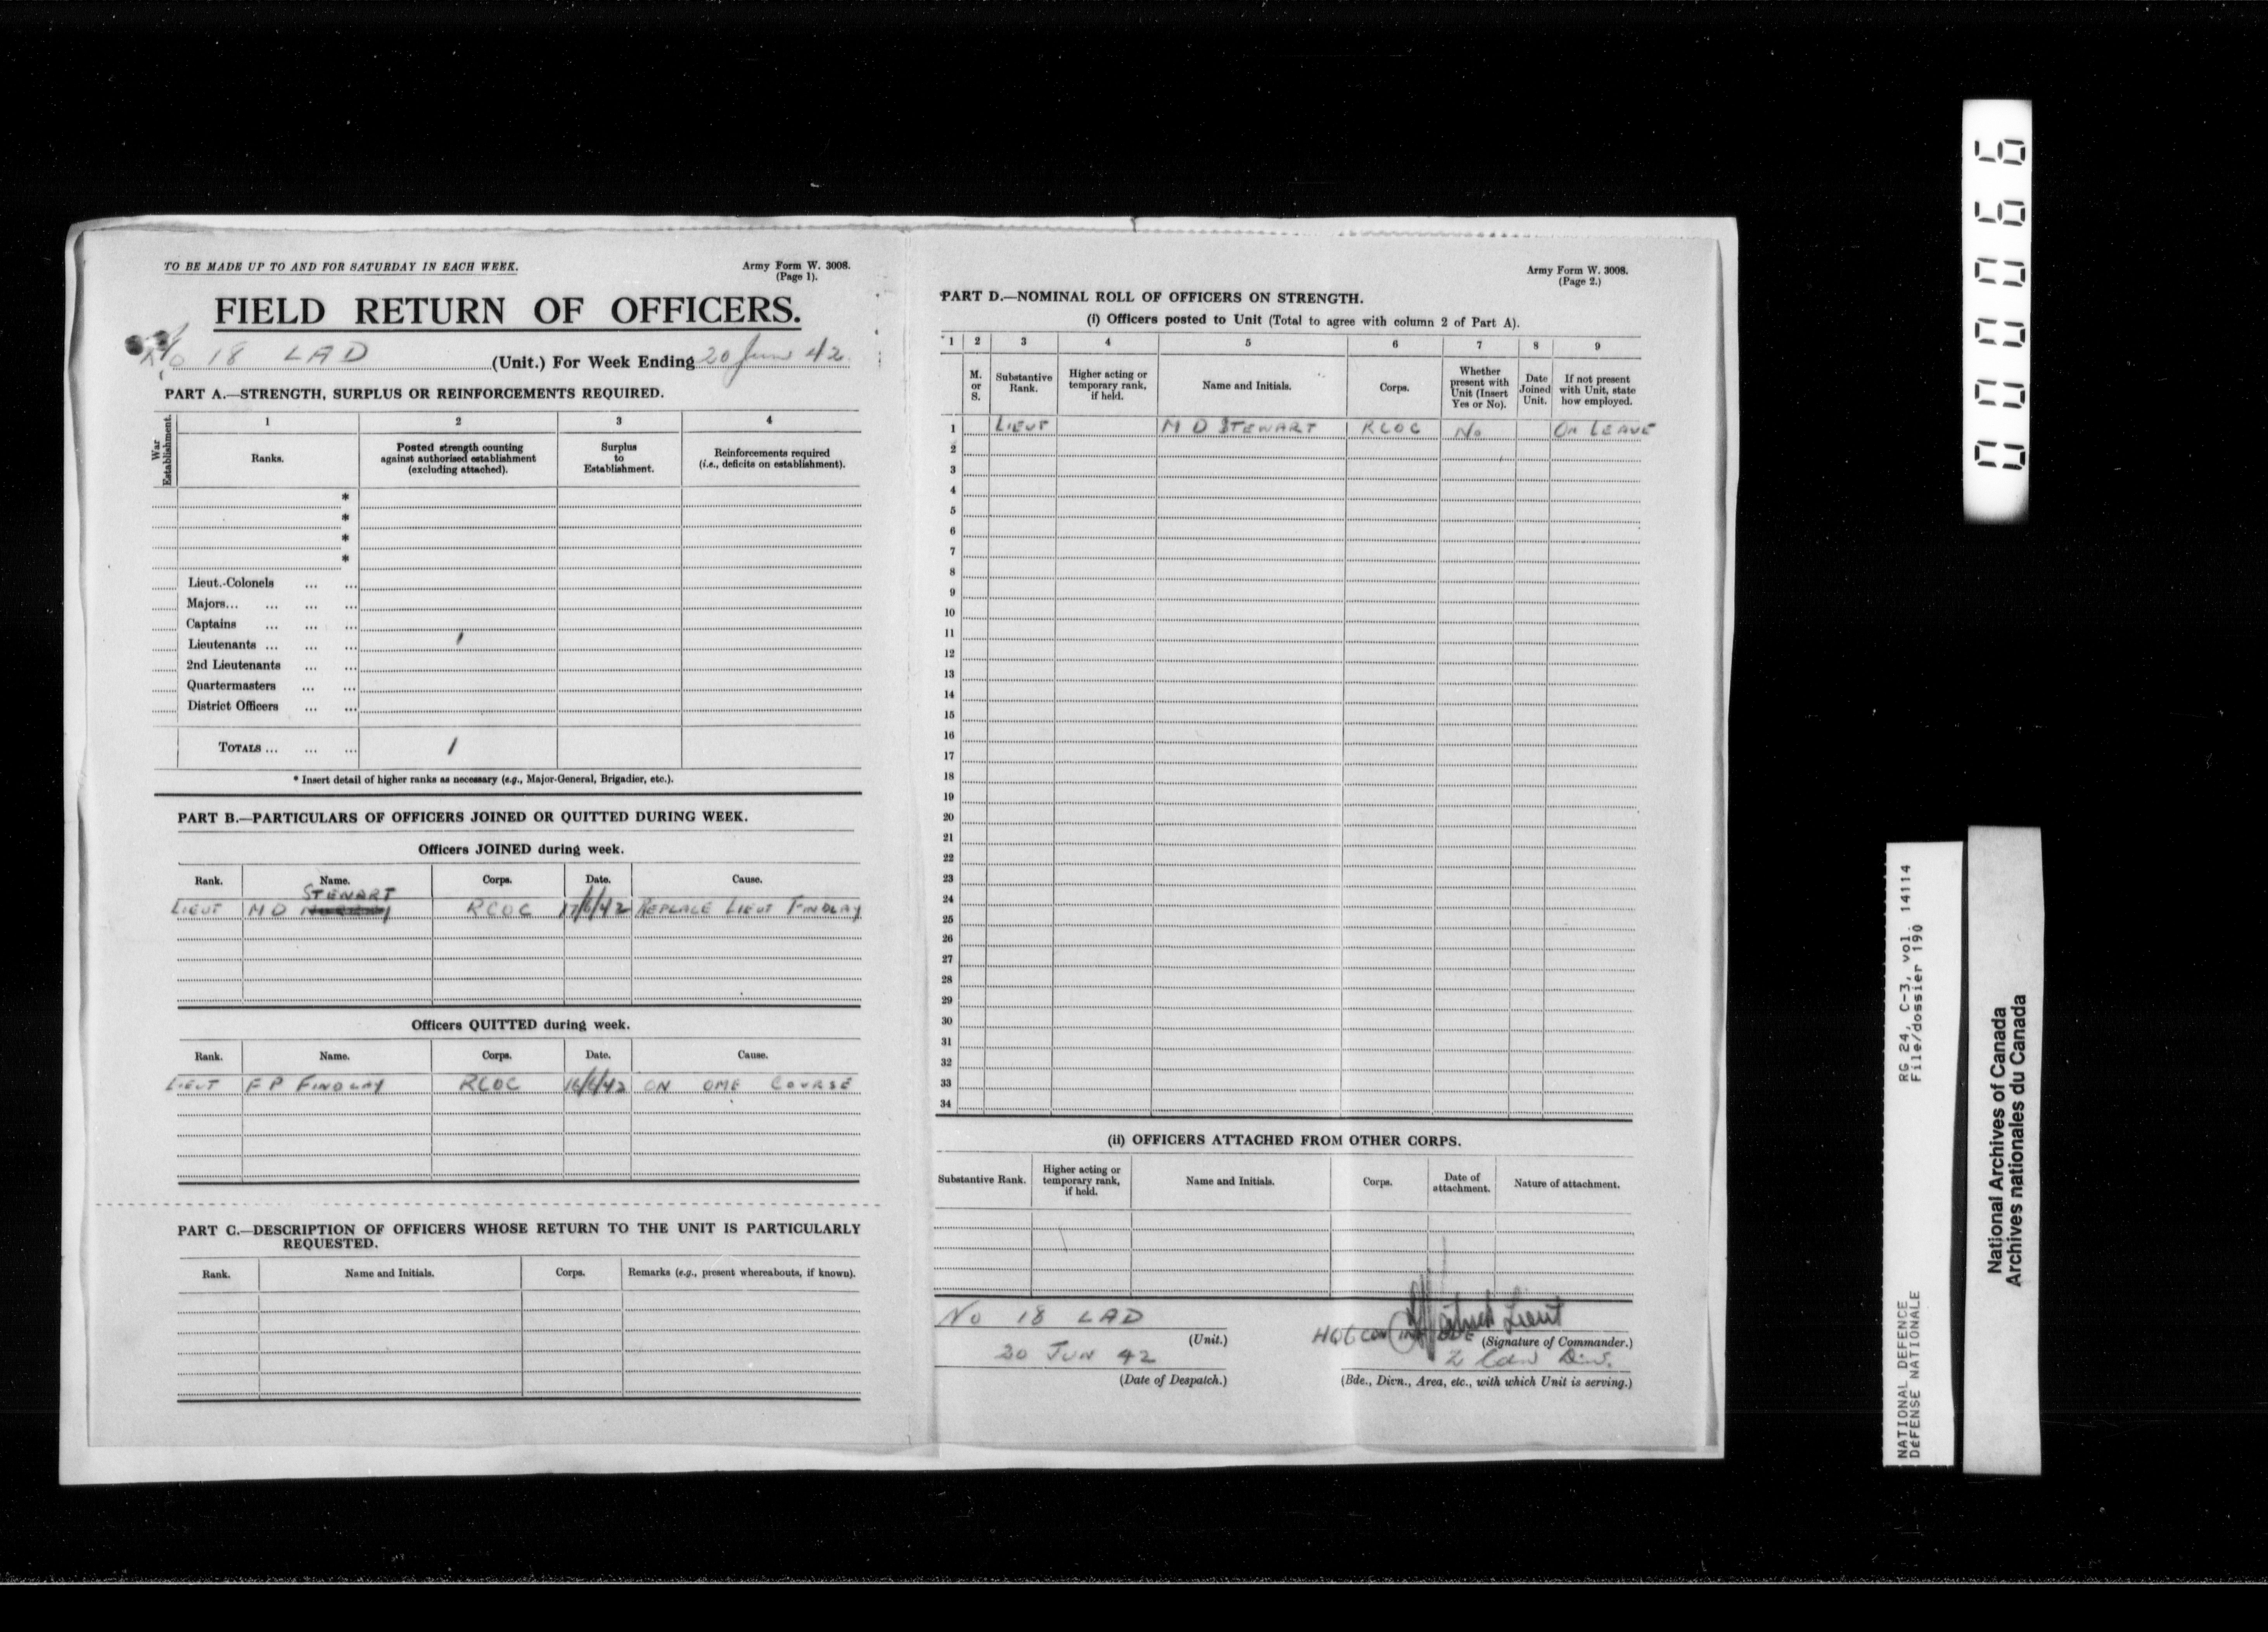 TO BE MADE UP TO AND FOR SATURDAY IN EACH WEEK.
Army Form W. 3008.
(Page 1).
FIELD RETURN OF OFFICERS.
No 18 LAD (Unit.) For Week Ending 20 June 42
PART A.—STRENGTH, SURPLUS OR REINFORCEMENTS REQUIRED.
War Establishment.
1 2 3 4
Ranks.
Posted strength counting against authorised establishment (excluding attached).
Surplus to Establishment.
Reinforcements required (i.e., deficits on establishment).
*
*
*
*
Lieut.-Colonels ... ...
Majors... ... ... ...
Captains ... ... ...
Lieutenants ... ... ... 1
2nd Lieutenants ... ...
Quartermasters ... ...
District Officers ... ...
TOTALS ... ... ... 1
* Insert detail of higher ranks as necessary (e.g., Major-General, Brigadier, etc.).
PART B.—PARTICULARS OF OFFICERS JOINED OR QUITTED DURING WEEK.
Officers JOINED during week.
Rank. Name. Corps. Date. Cause.
STEWART
LIEUT M D RCOC 17/6/42 REPLACE LIEUT FINDLAY
Officers QUITTED during week.
Rank. Name. Corps. Date. Cause.
LIEUT F P FINDLAY RCOC 16/6/42 ON OME COURSE
PART C.—DESCRIPTION OF OFFICERS WHOSE RETURN TO THE UNIT IS PARTICULARLY
REQUESTED.
Rank. Name and Initials. Corps. Remarks (e.g., present whereabouts, if known).
Army Form W. 3008.
(Page 2.)
PART D.—NOMINAL ROLL OF OFFICERS ON STRENGTH.
(i) Officers posted to Unit (Total to agree with column 2 of Part A).
1 2 3 4 5 6 7 8 9
M. or S.
Substantive Rank.
Higher acting or temporary rank, if held.
Name and Initials.
Corps.
Whether present with Unit (Insert Yes or No).
Date Joined Unit.
If not present with Unit, state how employed.
1 LIEUT M D STEWART RCOC No ON LEAVE
2
3
4
5
6
7
8
9
10
11
12
13
14
15
16
17
18
19
20
21
22
23
24
25
26
27
28
29
30
31
32
33
34
(ii) OFFICERS ATTACHED FROM OTHER CORPS.
Substantive Rank.
Higher acting or temporary rank, if held.
Name and Initials.
Corps.
Date of attachment.
Nature of attachment.
No 18 LAD
(Unit.)
20 JUN 42
(Date of Despatch.)
Lieut
(Signature of Commander.)
2 Cdn Div.
(Bde., Divn., Area, etc., with which Unit is serving.)
000066
RG 24, C-3, vol. 14114
File/dossier 190
NATIONAL DEFENCE
DÉFENSE NATIONALE
National Archives of Canada
Archives nationales du Canada